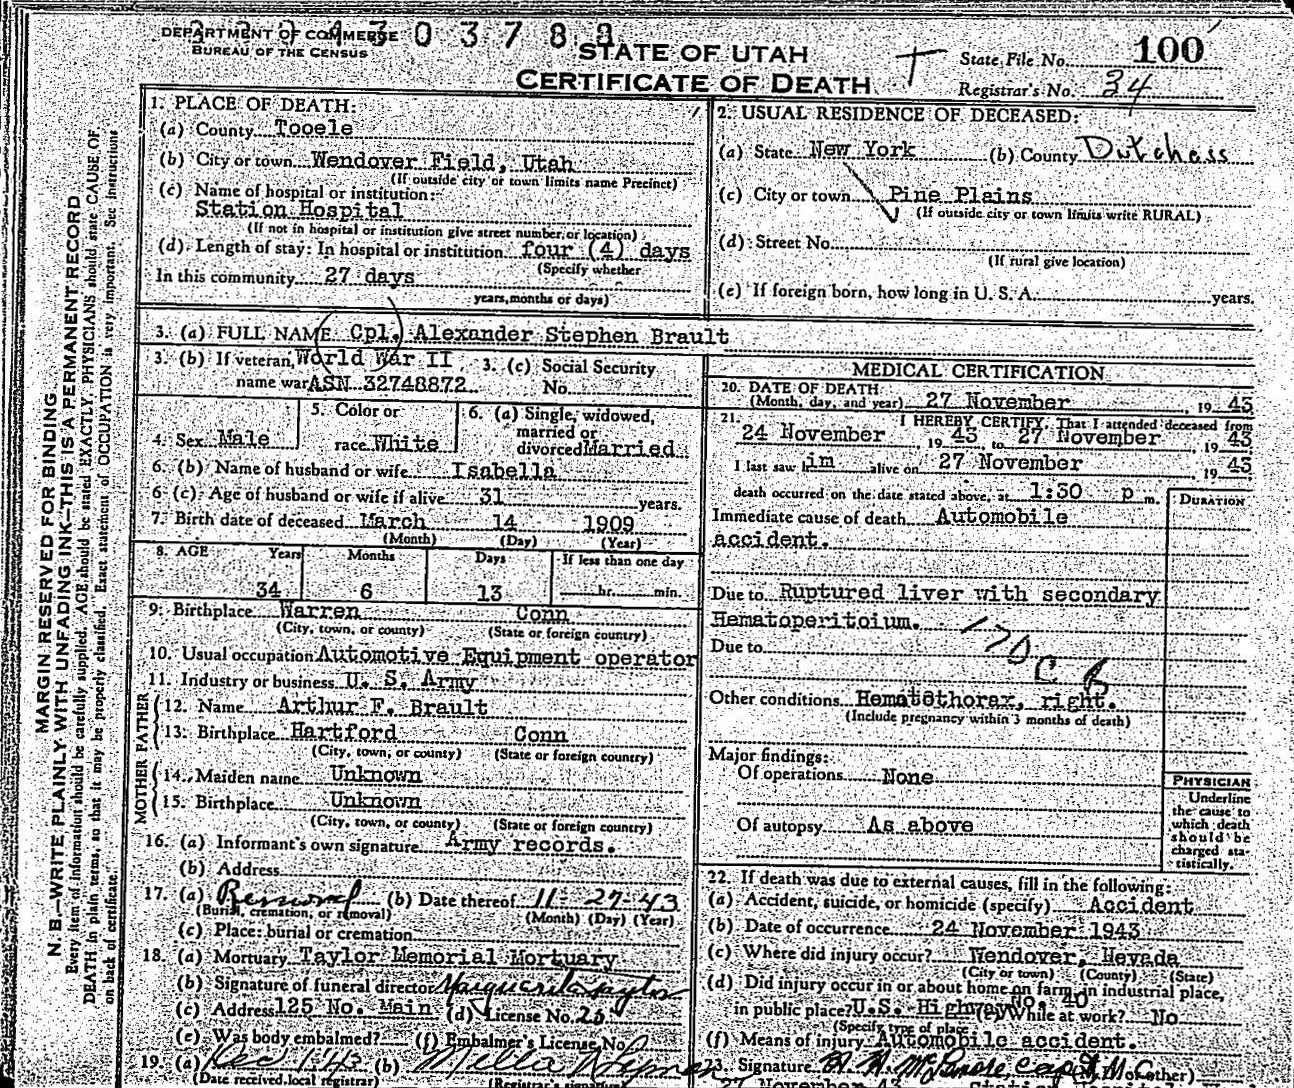 DEPARTMENT OF COMMERCE
BUREAU OF THE CENSUS
STATE OF UTAH
CERTIFICATE OF DEATH
State File No. 100
Registrar's No. 34
1. PLACE OF DEATH:
(a) County Tooele
(b) City or town Wendover Field, Utah
(If outside city or town limits name Precinct)
(c) Name of hospital or institution:
Station Hospital
(If not in hospital or institution give street number or location)
(d) Length of stay: In hospital or institution four (4) days
(Specify whether
In this community 27 days
years, months or days)
2. USUAL RESIDENCE OF DECEASED:
(a) State New York (b) County Dutchess
(c) City or town Pine Plains
(If outside city or town limits write RURAL)
(d) Street No.
(If rural give location)
(e) If foreign born, how long in U. S. A. years.
3. (a) FULL NAME Cpl. Alexander Stephen Brault
3. (b) If veteran, World War II
name war ASN 32748872
3. (c) Social Security
No.
4. Sex Male
5. Color or
race White
6. (a) Single, widowed,
married or
divorced Married
6. (b) Name of husband or wife Isabella
6 (c) Age of husband or wife if alive 31 years.
7. Birth date of deceased March 14 1909
(Month) (Day) (Year)
8. AGE Years Months Days If less than one day
34 6 13 hr. min.
9. Birthplace Warren Conn
(City, town, or county) (State or foreign country)
10. Usual occupation Automotive Equipment operator
11. Industry or business U. S. Army
FATHER
12. Name Arthur F. Brault
13. Birthplace Hartford Conn
(City, town, or county) (State or foreign country)
MOTHER
14. Maiden name Unknown
15. Birthplace Unknown
(City, town, or county) (State or foreign country)
16. (a) Informant's own signature Army records.
(b) Address
17. (a) Removal (b) Date thereof 11-27-43
(Burial, cremation, or removal) (Month) (Day) (Year)
(c) Place: burial or cremation
18. (a) Mortuary Taylor Memorial Mortuary
(b) Signature of funeral director Marguerite Taylor
(c) Address 125 No. Main (d) License No.
(e) Was body embalmed? (f) Embalmer's License No.
19. (a) Dec 1-43 (b)
(Date received local registrar) (Registrar's signature)
MEDICAL CERTIFICATION
20. DATE OF DEATH
(Month, day, and year) 27 November, 1943
21. I HEREBY CERTIFY, That I attended deceased from
24 November 1943 to 27 November, 1943
I last saw him alive on 27 November, 1943
death occurred on the date stated above, at 1:30 p m.
DURATION
Immediate cause of death Automobile
accident.
Due to Ruptured liver with secondary
Hematoperitoium.
Due to
170 C B
Other conditions Hematothorax, right.
(Include pregnancy within 3 months of death)
Major findings:
Of operations None
Of autopsy As above
PHYSICIAN
Underline
the cause to
which death
should be
charged sta-
tistically.
22. If death was due to external causes, fill in the following:
(a) Accident, suicide, or homicide (specify) Accident
(b) Date of occurrence 24 November 1943
(c) Where did injury occur? Wendover, Nevada
(City or town) (County) (State)
(d) Did injury occur in or about home on farm, in industrial place,
in public place? U.S. Highway No. 40 (e) While at work? No
(Specify type of place
(f) Means of injury Automobile accident.
23. Signature
27 November 43
MARGIN RESERVED FOR BINDING
N. B.—WRITE PLAINLY WITH UNFADING INK—THIS IS A PERMANENT RECORD
Every item of information should be carefully supplied. AGE should be stated EXACTLY. PHYSICIANS should state CAUSE OF
DEATH in plain terms, so that it may be properly classified. Exact statement of OCCUPATION is very important. See instructions
on back of certificate.